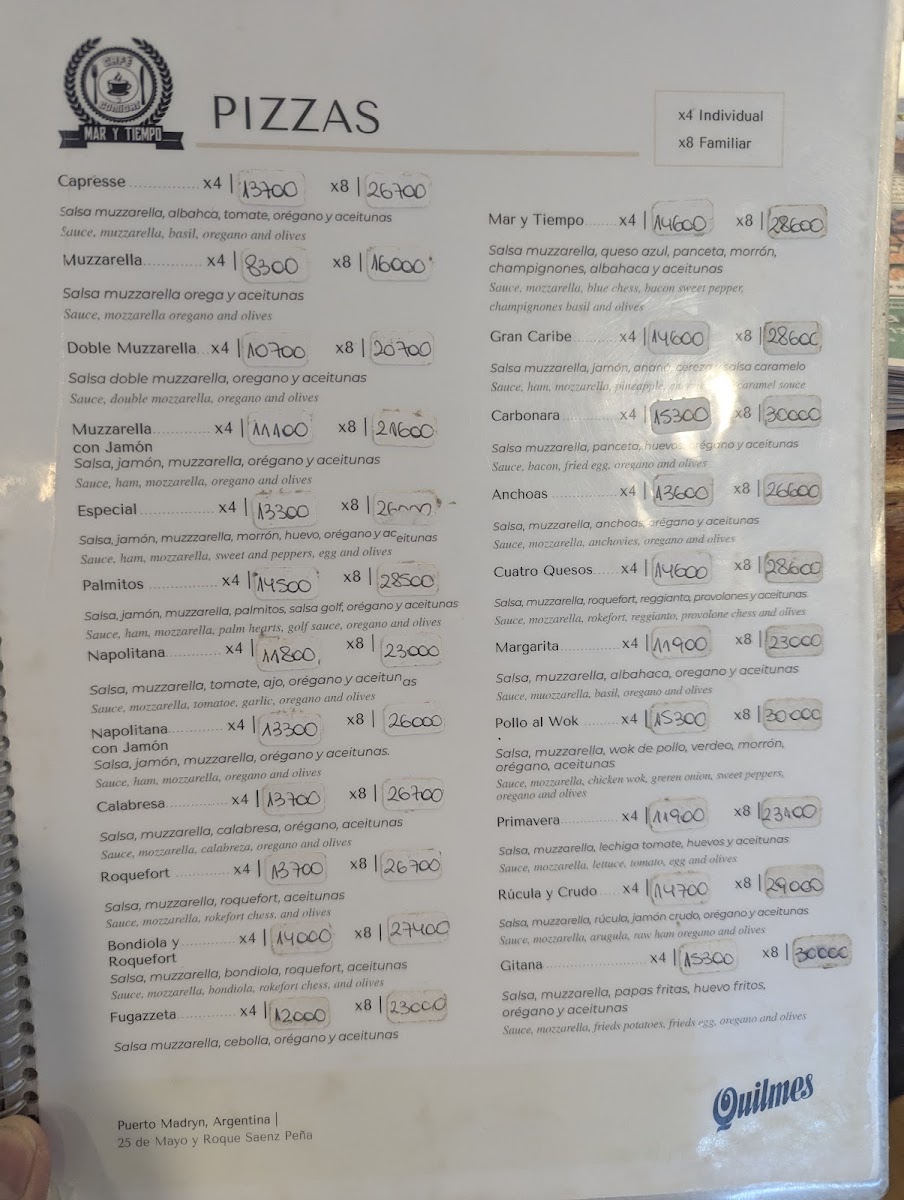 CAFÉ
COMIDAS
MAR Y TIEMPO
PIZZAS
x4 Individual
x8 Familiar
Capresse x4 | 13700 x8 | 26700
Salsa muzzarella, albahca, tomate, orégano y aceitunas
Sauce, muzzarella, basil, oregano and olives
Muzzarella x4 | 8300 x8 | 16000
Salsa muzzarella orega y aceitunas
Sauce, mozzarella oregano and olives
Doble Muzzarella x4 | 10700 x8 | 20700
Salsa doble muzzarella, oregano y aceitunas
Sauce, double mozzarella, oregano and olives
Muzzarella x4 | 11100 x8 | 21600
con Jamón
Salsa, jamón, muzzarella, orégano y aceitunas
Sauce, ham, mozzarella, oregano and olives
Especial x4 | 13300 x8 |
Salsa, jamón, muzzzarella, morrón, huevo, orégano y aceitunas
Sauce, ham, mozzarella, sweet and peppers, egg and olives
Palmitos x4 | 14500 x8 | 28500
Salsa, jamón, muzzarella, palmitos, salsa golf, orégano y aceitunas
Sauce, ham, mozzarella, palm hearts, golf sauce, oregano and olives
Napolitana x4 | 11800 x8 | 23000
Salsa, muzzarella, tomate, ajo, orégano y aceitunas
Sauce, mozzarella, tomatoe, garlic, oregano and olives
Napolitana x4 | 13300 x8 | 26000
con Jamón
Salsa, jamón, muzzarella, orégano y aceitunas.
Sauce, ham, mozzarella, oregano and olives
Calabresa x4 | 13700 x8 | 26700
Salsa, muzzarella, calabresa, orégano, aceitunas
Sauce, mozzarella, calabreza, oregano and olives
Roquefort x4 | 13700 x8 | 26700
Salsa, muzzarella, roquefort, aceitunas
Sauce, mozzarella, rokefort chess, and olives
Bondiola y x4 | 14000 x8 | 27400
Roquefort
Salsa, muzzarella, bondiola, roquefort, aceitunas
Sauce, mozzarella, bondiola, rokefort chess, and olives
Fugazzeta x4 | 12000 x8 | 23000
Salsa muzzarella, cebolla, orégano y aceitunas
Mar y Tiempo x4 | 14600 x8 | 28600
Salsa muzzarella, queso azul, panceta, morrón,
champignones, albahaca y aceitunas
Sauce, mozzarella, blue chess, bacon sweet pepper,
champignones basil and olives
Gran Caribe x4 | 14600 x8 | 28600
Salsa muzzarella, jamón, ananá, cereza y salsa caramelo
Sauce, ham, mozzarella, pineapple, caramel souce
Carbonara x4 | 15300 x8 | 30000
Salsa muzzarella, panceta, huevos, orégano y aceitunas
Sauce, bacon, fried egg, oregano and olives
Anchoas x4 | 13600 x8 | 26600
Salsa, muzzarella, anchoas, orégano y aceitunas
Sauce, mozzarella, anchovies, oregano and olives
Cuatro Quesos x4 | 14600 x8 | 28600
Salsa, muzzarella, roquefort, reggianta, provolones y aceitunas
Sauce, mozzarella, rokefort, reggianto, provolone chess and olives
Margarita x4 | 11900 x8 | 23000
Salsa, muzzarella, albahaca, oregano y aceitunas
Sauce, muozzarella, basil, oregano and olives
Pollo al Wok x4 | 15300 x8 | 30000
Salsa, muzzarella, wok de pollo, verdeo, morrón,
orégano, aceitunas
Sauce, mozzarella, chicken wok, greren onion, sweet peppers,
oregano and olives
Primavera x4 | 11900 x8 | 23100
Salsa, muzzarella, lechiga tomate, huevos y aceitunas
Sauce, mozzarella, lettuce, tomato, egg and olives
Rúcula y Crudo x4 | 14700 x8 | 29000
Salsa, muzzarella, rúcula, jamón crudo, orégano y aceitunas
Sauce, mozzarella, arugula, raw ham oregano and olives
Gitana x4 | 15300 x8 | 30000
Salsa, muzzarella, papas fritas, huevo fritos,
orégano y aceitunas
Sauce, mozzarella, frieds potatoes, frieds egg, oregano and olives
Puerto Madryn, Argentina |
25 de Mayo y Roque Saenz Peña
Quilmes